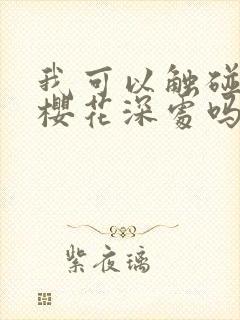 我可以触碰
樱花深处吗
紫夜璃